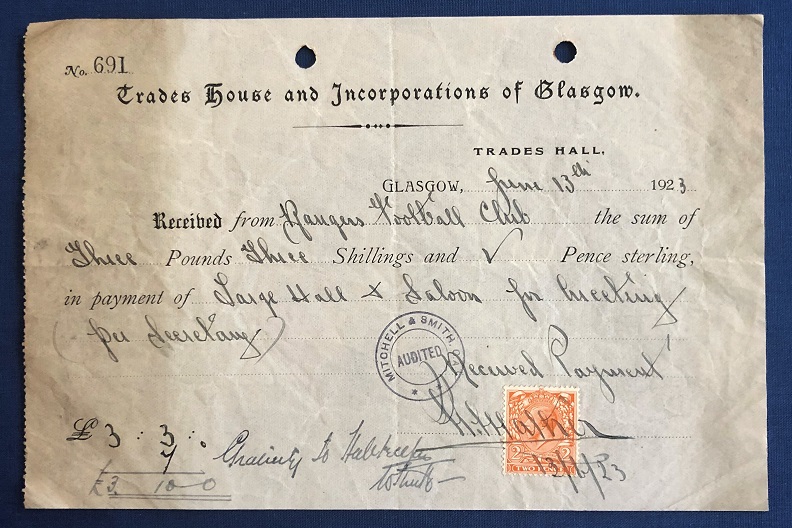 No. 691
Trades House and Incorporations of Glasgow.
TRADES HALL,
GLASGOW, June 13th 1923
Received from Rangers Football Club the sum of
Three Pounds Three Shillings and ✓ Pence sterling,
in payment of Large Hall & Saloon for meeting
(per Secretary)
MITCHELL & SMITH.
AUDITED
Received Payment
£3 : 3 : .
7 Gratuity to Hallkeeper
£3. 10 - 0
TWO PENCE
13/6/23